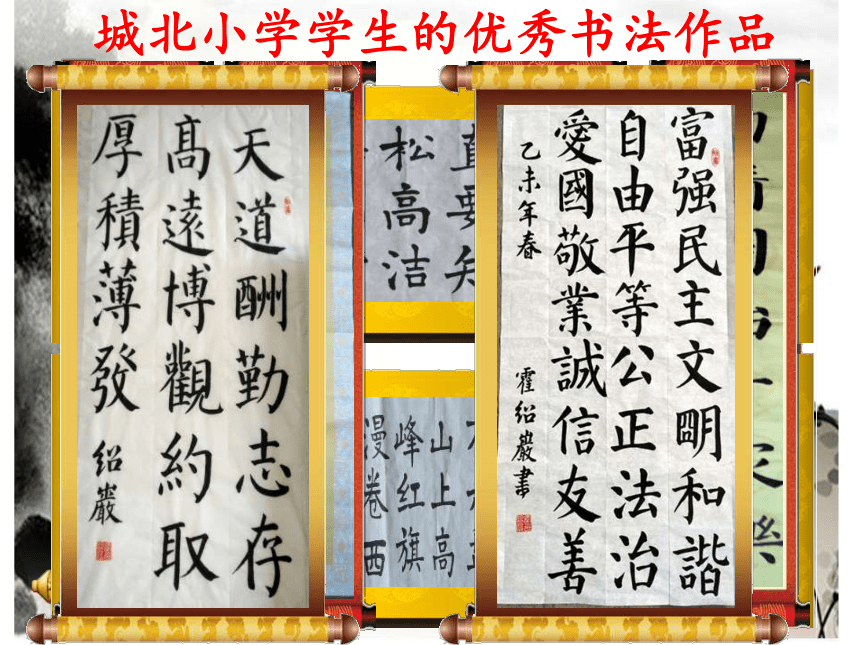 城北小学学生的优秀书法作品
天道酬勤志存
髙遠博觀約取
厚積薄發
紹巖
松高洁
山上高
峰红旗
漫卷西
富强民主文明和諧
自由平等公正法治
愛國敬業誠信友善
乙未年春
霍紹巖書